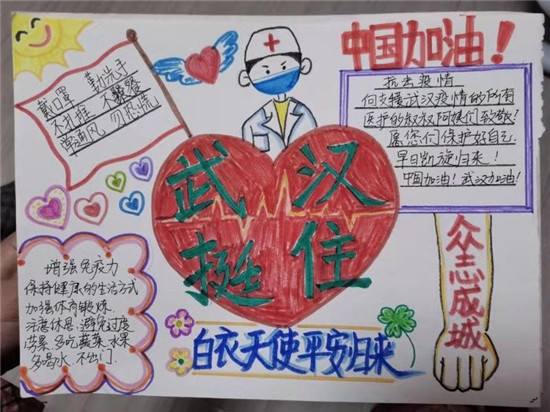 中国加油！
戴口罩 勤洗手
不扎推 不聚餐
常通风 勿恐慌
抗击疫情
向支援武汉疫情的所有
医护的叔叔阿姨们致敬！
愿您们保护好自己
早日凯旋归来！
中国加油！武汉加油！
武汉
挺住
众志成城
增强免疫力
保持健康的生活方式
加强体育锻炼.
注意休息.避免过度
多吃蔬菜.水果
多喝水.不出门.
白衣天使平安归来